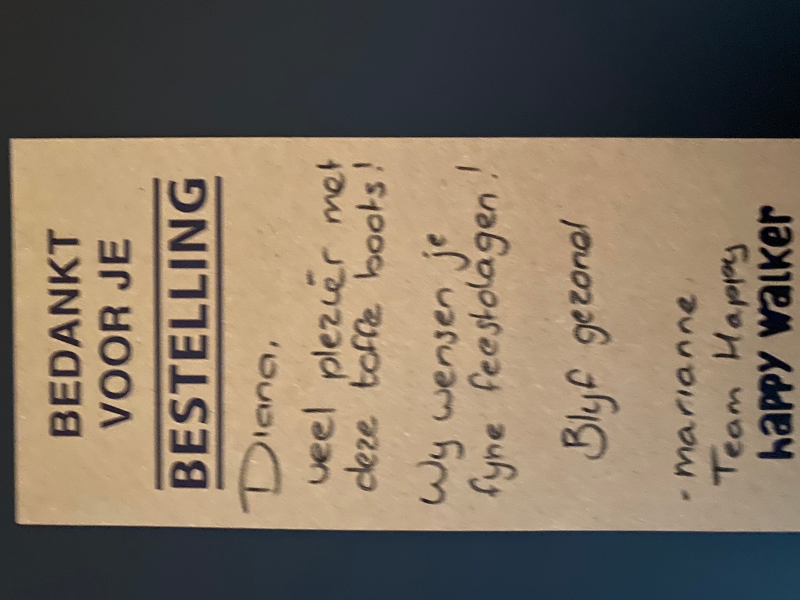 BEDANKT
VOOR JE
BESTELLING
Diana,
veel plezier met
deze toffe boots!
Wy wensen je
fyne feestdagen!
Blyf gezond
- marianne.
Team Happy
happy walker